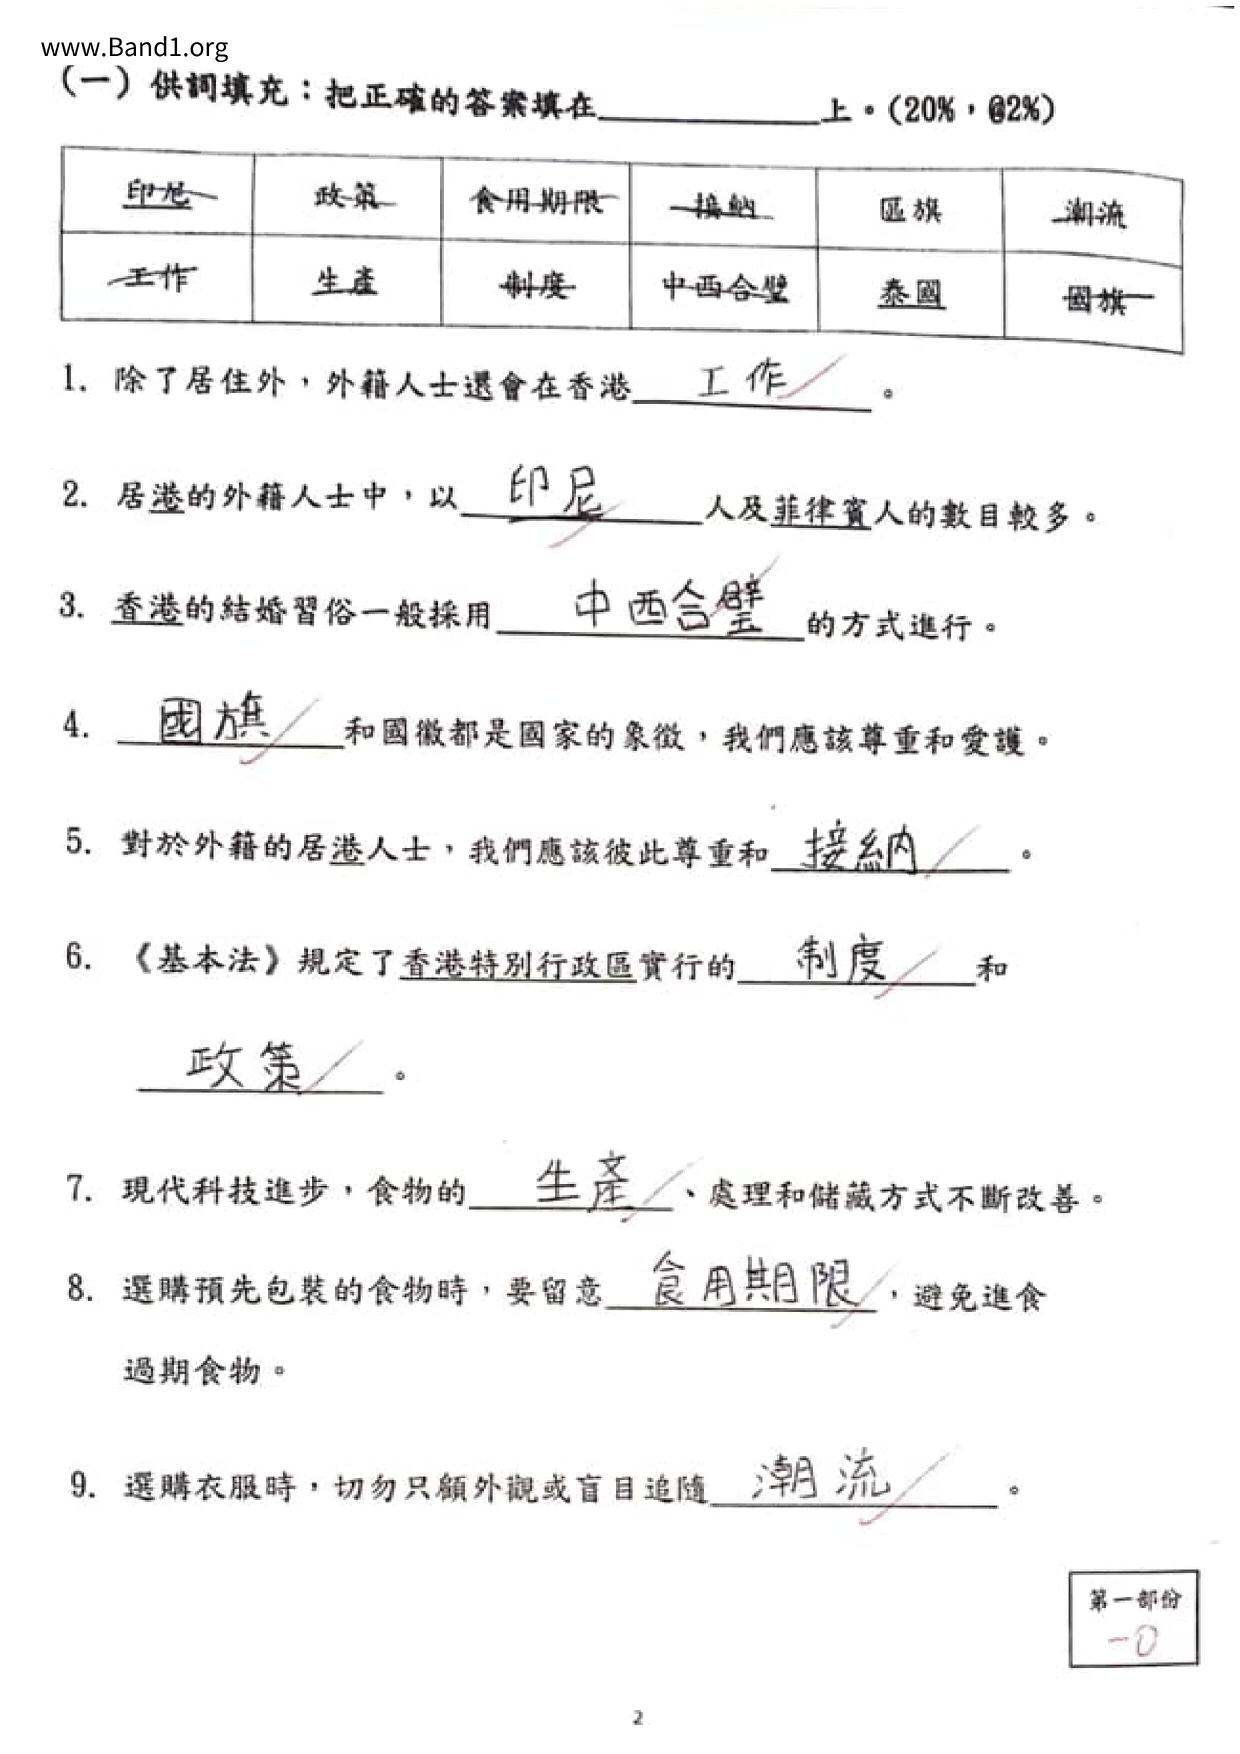 www.Band1.org
(一) 供詞填充：把正確的答案填在__________上。(20%，@2%)
印尼 政策 食用期限 接納 區旗 潮流
工作 生產 制度 中西合璧 泰國 國旗
1. 除了居住外，外籍人士還會在香港 工作 。
2. 居港的外籍人士中，以 印尼 人及菲律賓人的數目較多。
3. 香港的結婚習俗一般採用 中西合璧 的方式進行。
4. 國旗 和國徽都是國家的象徵，我們應該尊重和愛護。
5. 對於外籍的居港人士，我們應該彼此尊重和 接納 。
6. 《基本法》規定了香港特別行政區實行的 制度 和
政策 。
7. 現代科技進步，食物的 生產 、處理和儲藏方式不斷改善。
8. 選購預先包裝的食物時，要留意 食用期限 ，避免進食
過期食物。
9. 選購衣服時，切勿只顧外觀或盲目追隨 潮流 。
第一部份
-0
2